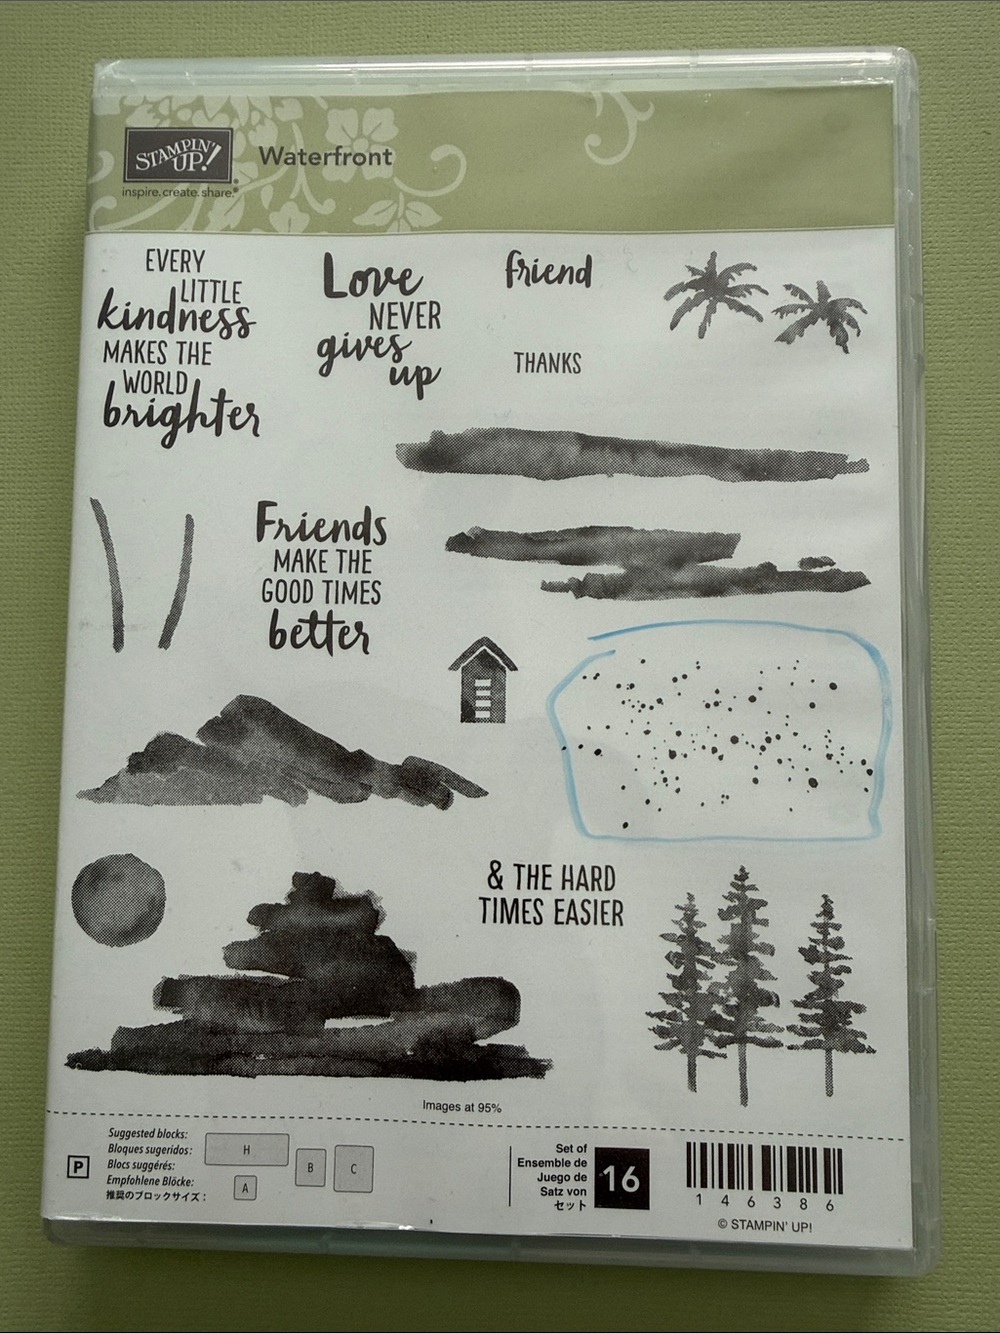 STAMPIN' UP!
inspire.create.share.®
Waterfront
EVERY
LITTLE
kindness
MAKES THE
WORLD
brighter
Love
NEVER
gives
up
friend
THANKS
Friends
MAKE THE
GOOD TIMES
better
& THE HARD
TIMES EASIER
Images at 95%
P
Suggested blocks:
Bloques sugeridos:
Blocs suggérés:
Empfohlene Blöcke:
推奨のブロックサイズ：
H
A
B
C
Set of
Ensemble de
Juego de
Satz von
セット
16
146386
© STAMPIN' UP!